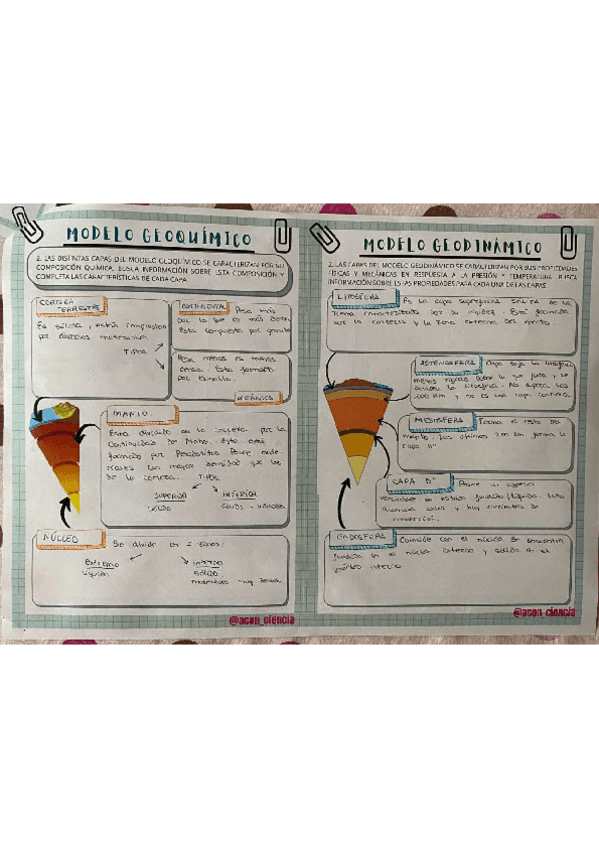 MODELO GEOQUÍMICO
2. LAS DISTINTAS CAPAS DEL MODELO GEOQUÍMICO SE CARACTERIZAN POR SU
COMPOSICIÓN QUÍMICA. BUSCA INFORMACIÓN SOBRE ESTA COMPOSICIÓN Y
COMPLETA LAS CARACTERÍSTICAS DE CADA CAPA.
CORTEZA
TERRESTRE
Es sólida, está compuesta
por
TIPOS
CONTINENTAL Pesa más
por lo que es más densa.
Esta compuesta por granito
Pesa menos es menos
densa. Esta formada
por basalto.
OCEÁNICA
MANTO
Esta dividido de la corteza por la
Continuidad de Moho. Esta
formado por Peridotitas Posee
mayor densidad que los
de la corteza. TIPOS
SUPERIOR INFERIOR
SÓLIDO
NÚCLEO Se divide en 2 zonas:
EXTERNO INTERNO
Líquido SÓLIDO
muy
@acon_ciencia
MODELO GEODINÁMICO
2. LAS CAPAS DEL MODELO GEODINÁMICO SE CARACTERIZAN POR SUS PROPIEDADES
FÍSICAS Y MECÁNICAS EN RESPUESTA A LA PRESIÓN Y TEMPERATURA. BUSCA
INFORMACIÓN SOBRE ESTAS PROPIEDADES PARA CADA UNA DE LAS CAPAS.
LITOSFERA Es la capa superficial sólida de la
Tierra caracterizada por su rigidez. Está formada
por la corteza y la zona externa del manto.
ASTENOSFERA Capa bajo la litosfera
menos rígida sobre la
la litosfera. No supera los
km y no es una capa continua.
MESOSFERA Forma el resto del
manto. Los últimos km forman la
capa D"
CAPA D" Posee un espesor
variable en estado fundido/líquido.
calor y hay corrientes de
convección.
ENDOSFERA Coincide con el núcleo. Se encuentra
fundida en el núcleo externo y sólida en el
núcleo interno.
@acon_ciencia